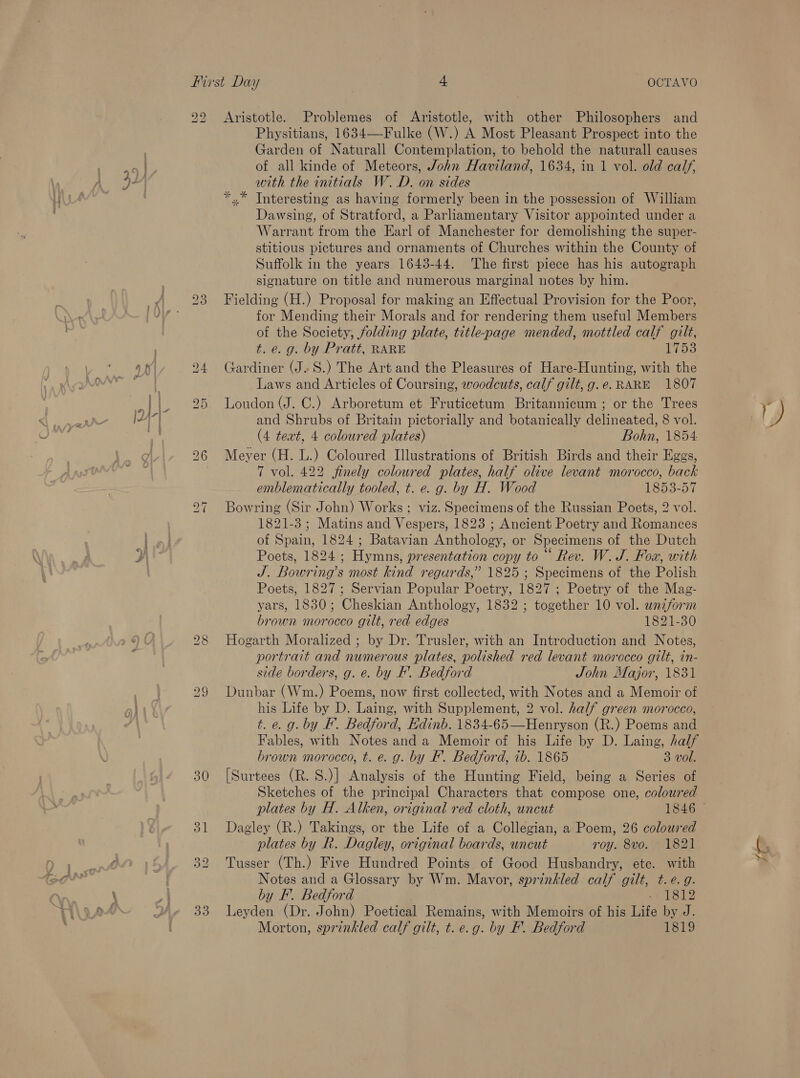 First Day 4 OCTAVO
22 Aristotle. Problemes of Aristotle, with other Philosophers and
Physitians, 1634—Fulke (W.) A Most Pleasant Prospect into the
Garden of Naturall Contemplation, to behold the naturall causes
of all kinde of Meteors, John Haviland, 1634, in 1 vol. old calf,
with the initials W. D. on sides
*⁎* Interesting as having formerly been in the possession of William
Dawsing, of Stratford, a Parliamentary Visitor appointed under a
Warrant from the Earl of Manchester for demolishing the super-
stitious pictures and ornaments of Churches within the County of
Suffolk in the years 1643-44. The first piece has his autograph
signature on title and numerous marginal notes by him.
23 Fielding (H.) Proposal for making an Effectual Provision for the Poor,
for Mending their Morals and for rendering them useful Members
of the Society, folding plate, title-page mended, mottled calf gilt,
t. e. g. by Pratt, RARE 1753
24 Gardiner (J. S.) The Art and the Pleasures of Hare-Hunting, with the
Laws and Articles of Coursing, woodcuts, calf gilt, g. e. RARE 1807
25 Loudon (J. C.) Arboretum et Fruticetum Britannicum ; or the Trees
and Shrubs of Britain pictorially and botanically delineated, 8 vol.
(4 text, 4 coloured plates) Bohn, 1854
26 Meyer (H. L.) Coloured Illustrations of British Birds and their Eggs,
7 vol. 422 finely coloured plates, half olive levant morocco, back
emblematically tooled, t. e. g. by H. Wood 1853-57
27 Bowring (Sir John) Works ; viz. Specimens of the Russian Poets, 2 vol.
1821-3 ; Matins and Vespers, 1823 ; Ancient Poetry and Romances
of Spain, 1824 ; Batavian Anthology, or Specimens of the Dutch
Poets, 1824 ; Hymns, presentation copy to “ Rev. W. J. Fox, with
J. Bowring's most kind regards,” 1825 ; Specimens of the Polish
Poets, 1827 ; Servian Popular Poetry, 1827 ; Poetry of the Mag-
yars, 1830 ; Cheskian Anthology, 1832 ; together 10 vol. uniform
brown morocco gilt, red edges 1821-30
28 Hogarth Moralized ; by Dr. Trusler, with an Introduction and Notes,
portrait and numerous plates, polished red levant morocco gilt, in-
side borders, g. e. by F. Bedford John Major, 1831
29 Dunbar (Wm.) Poems, now first collected, with Notes and a Memoir of
his Life by D. Laing, with Supplement, 2 vol. half green morocco,
t. e. g. by F. Bedford, Edinb. 1834-65—Henryson (R.) Poems and
Fables, with Notes and a Memoir of his Life by D. Laing, half
brown morocco, t. e. g. by F. Bedford, ib. 1865 3 vol.
30 [Surtees (R. S.)] Analysis of the Hunting Field, being a Series of
Sketches of the principal Characters that compose one, coloured
plates by H. Alken, original red cloth, uncut 1846
31 Dagley (R.) Takings, or the Life of a Collegian, a Poem, 26 coloured
plates by R. Dagley, original boards, uncut roy. 8vo. 1821
32 Tusser (Th.) Five Hundred Points of Good Husbandry, etc. with
Notes and a Glossary by Wm. Mavor, sprinkled calf gilt, t. e. g.
by F. Bedford 1812
33 Leyden (Dr. John) Poetical Remains, with Memoirs of his Life by J.
Morton, sprinkled calf gilt, t. e. g. by F. Bedford 1819